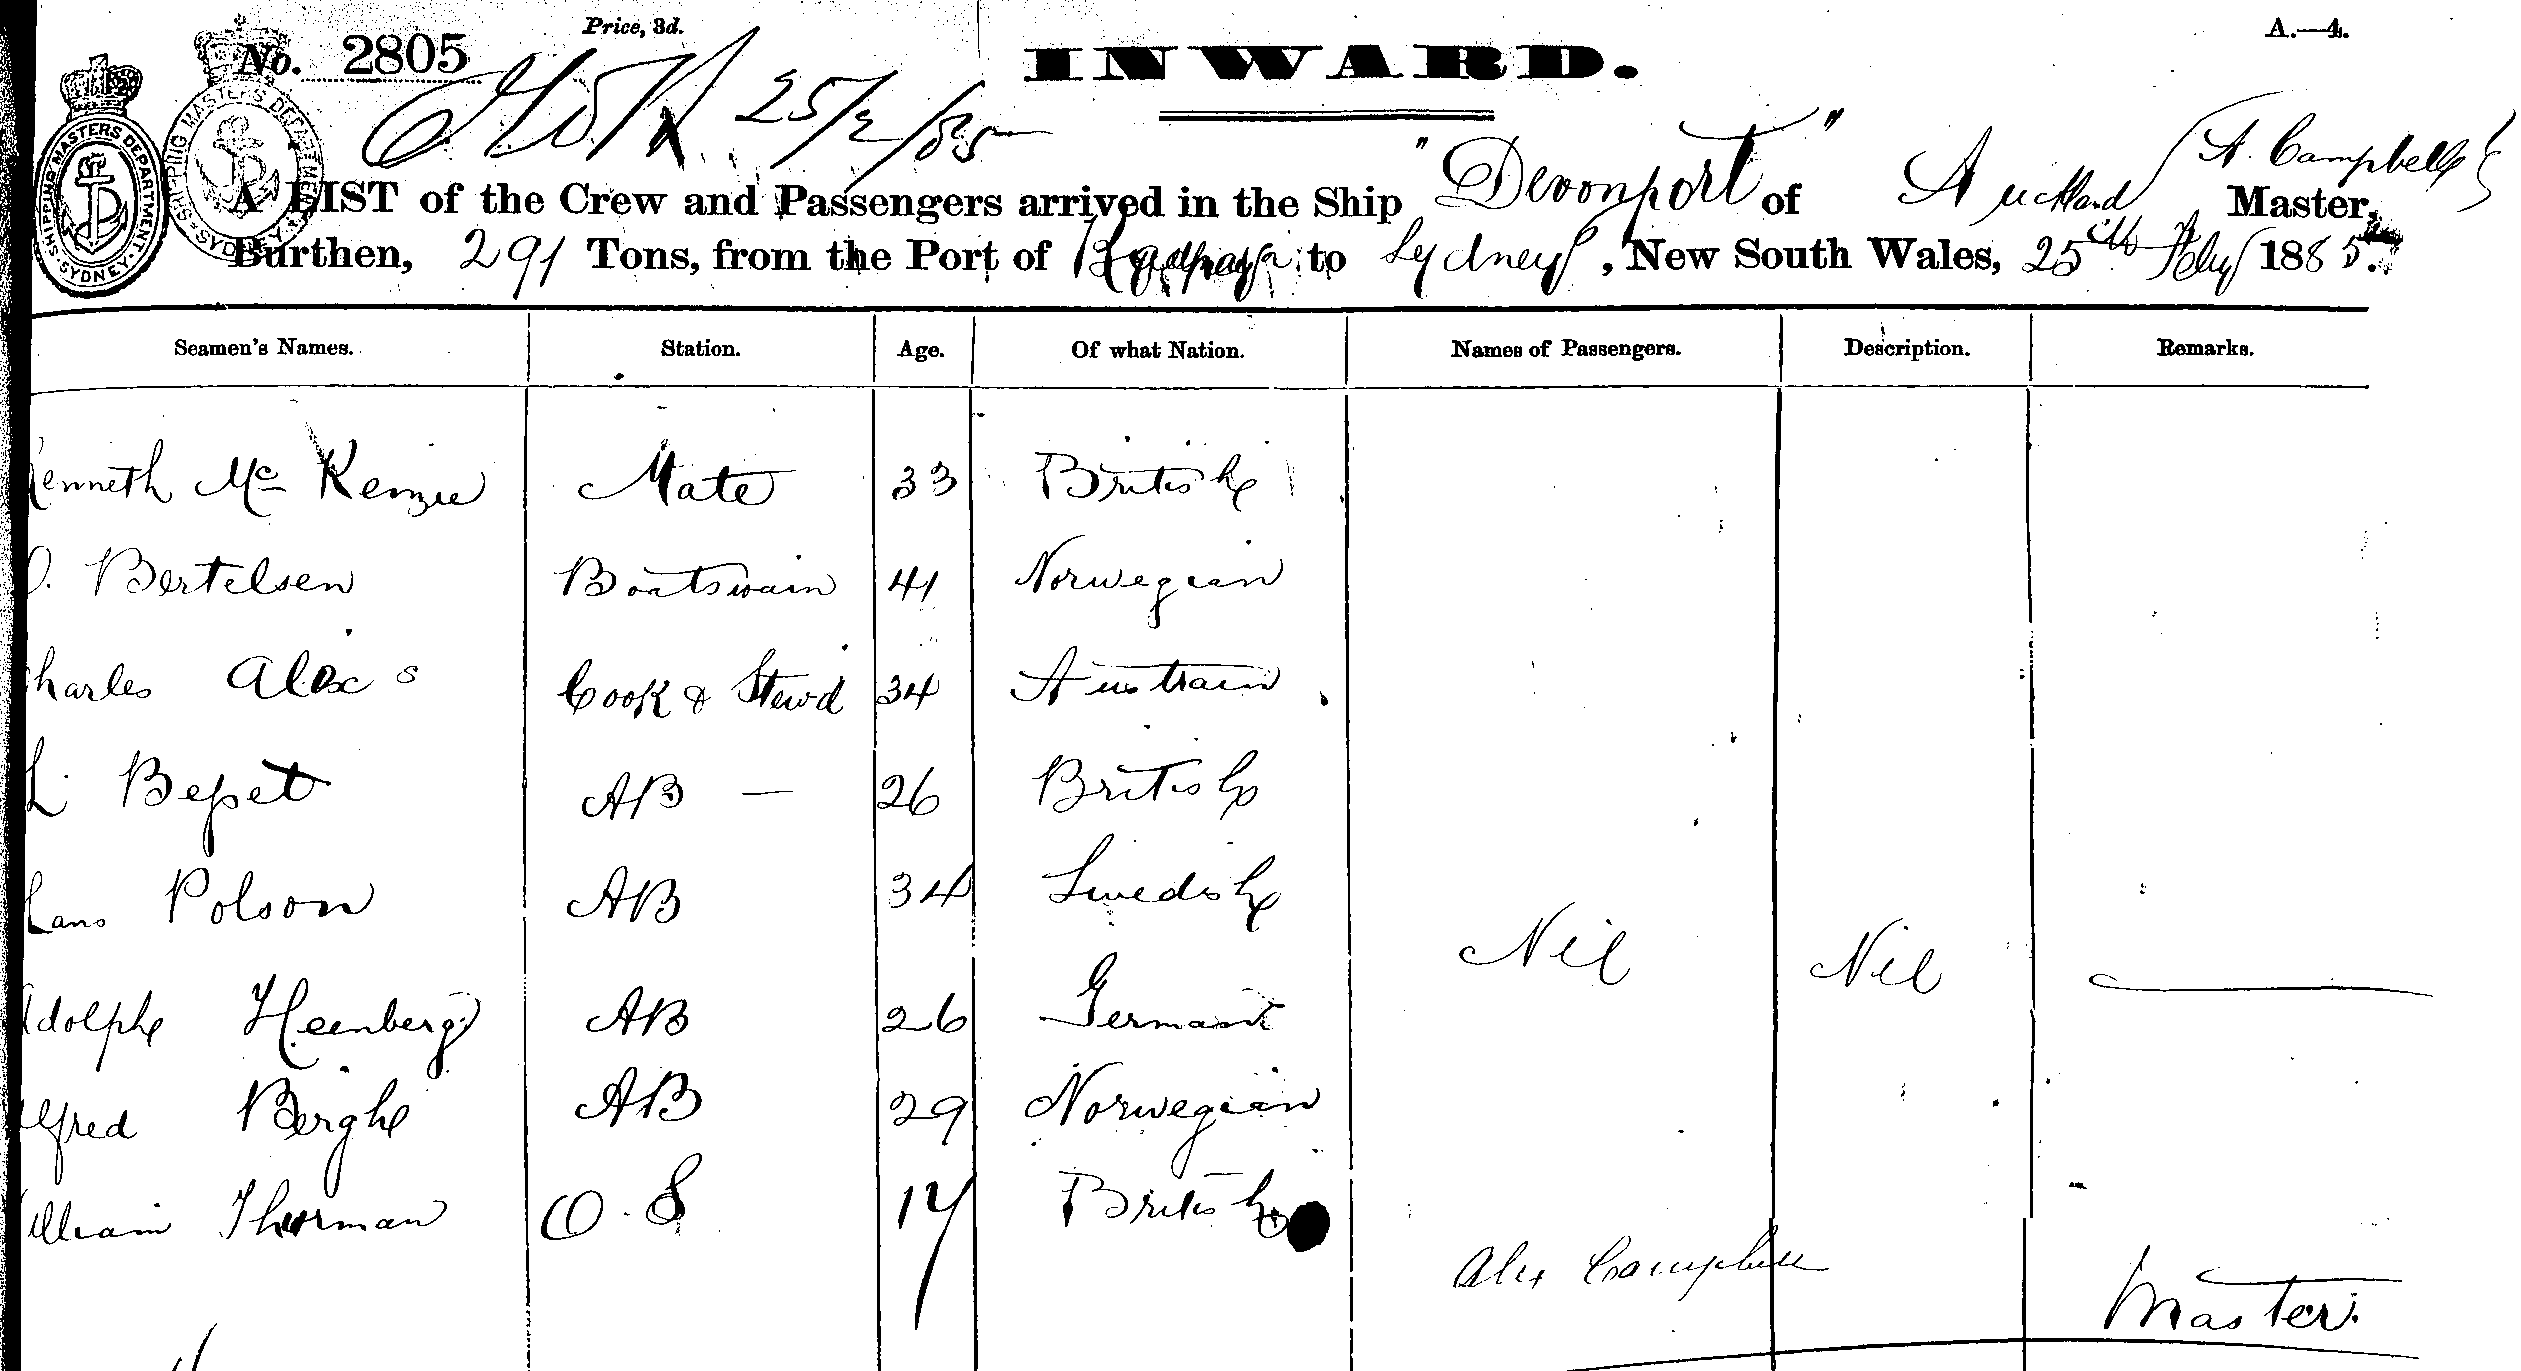 Price, 3d.
A.—4.
No. 2805
INWARD.
25/2/85
SHIPPING MASTERS DEPARTMENT · SYDNEY ·
SHIPPING MASTERS DEPARTMENT · SYDNEY ·
A LIST of the Crew and Passengers arrived in the Ship "Devonport" of Auckland (A. Campbell) Master,
Burthen, 291 Tons, from the Port of to Sydney, New South Wales, 25th Feby 1885.
Seamen's Names. Station. Age. Of what Nation. Names of Passengers. Description. Remarks.
Kenneth Mc Kenzie Mate 33 British
O. Bertelsen Boatswain 41 Norwegian
Charles Alex Cook & Stewd 34 Austrain
Beſset AB — 26 British
Hans Polson AB 34 Swedish
Nil Nil
Adolphe Heenberg AB 26 German
Alfred Berghe AB 29 Norwegian
William Thorman O.S 17 British
Alex Campbell
Master.